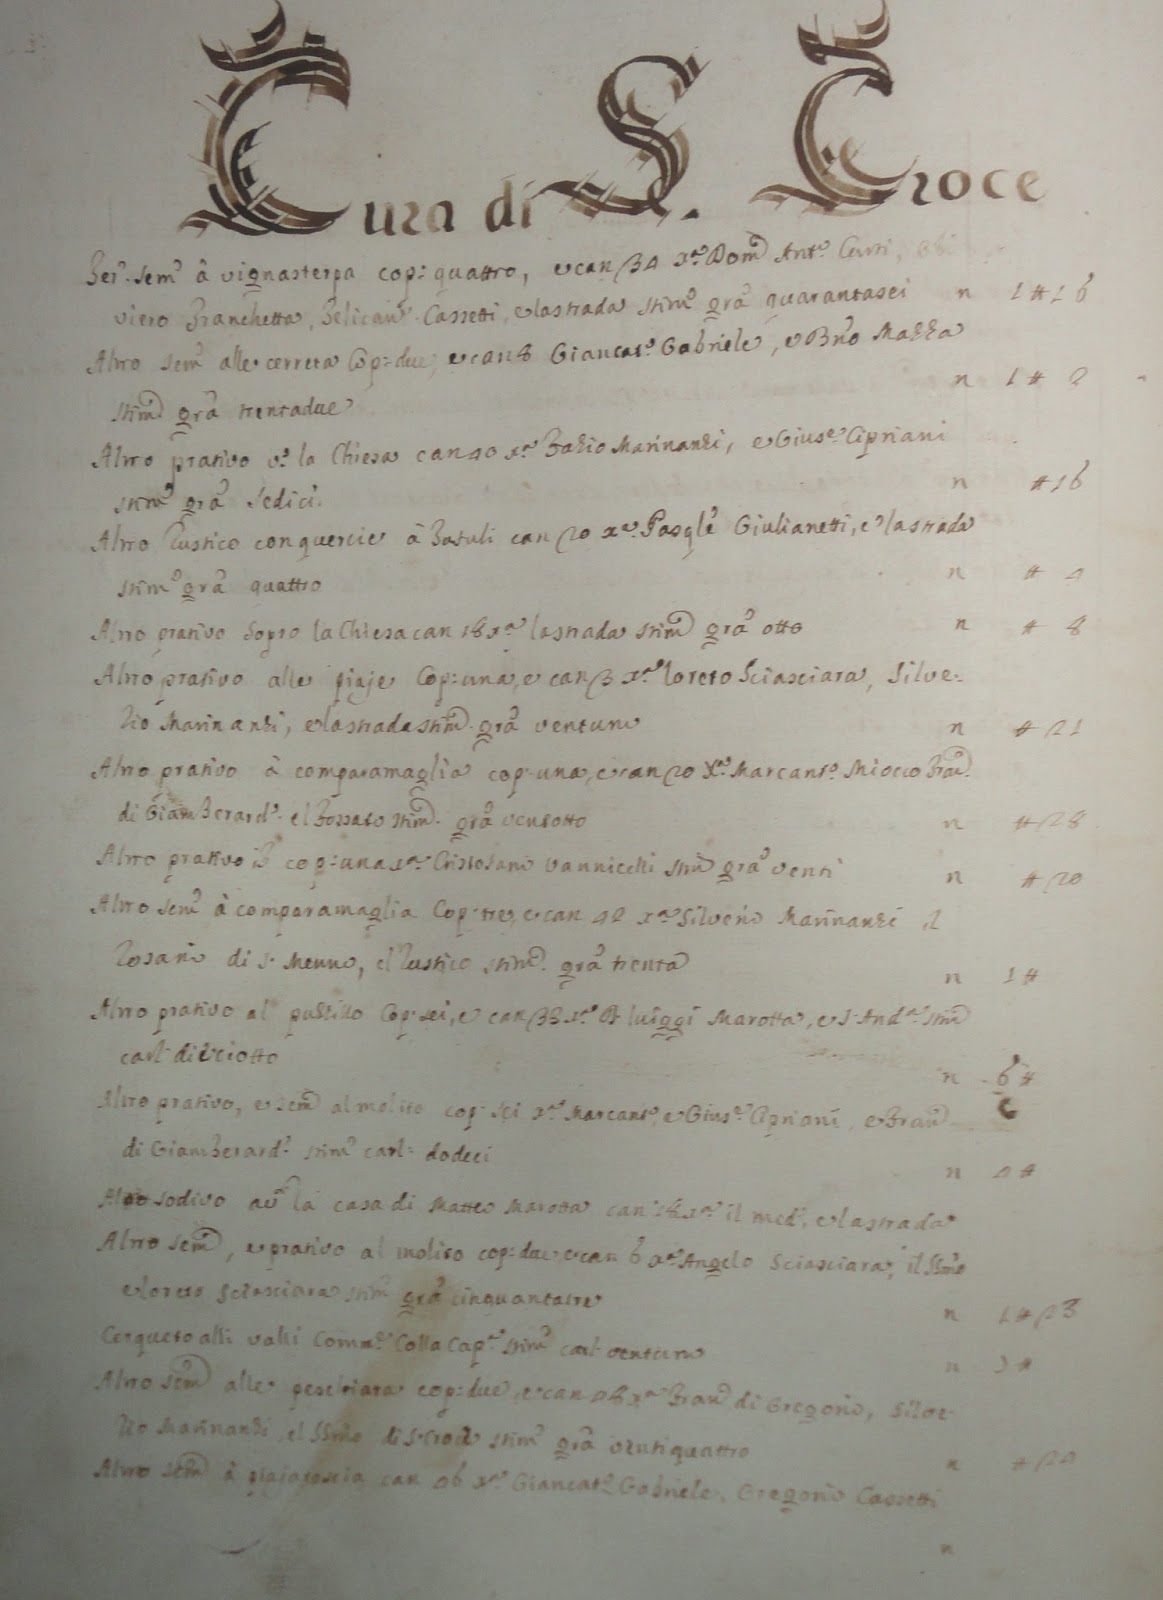 Cura di S. Croce
Ter.° sem.° à vignasterpa cop: quattro, e can 34 x.ª Dom.° Ant.° Curti,
viero Franchetta, Felican.° Cassetti, e la strada stim.° grã quarantasei n 1 # 16
Altro sem.° alle cerreta Cop: due, e can 8 Giancar.° Gabriele, e Bñõ Mazza
stim.° grã trentadue n 1 # 2
Altro prativo v.° la Chiesa can 40 x.ª Fabio Marinanzi, e Gius.e Cipriani
stim.° grã sedici. n # 16
Altro Rustico con quercie à Fasuli can 20 x.ª Pasqle Giulianetti, e la strada
stim.° grã quattro n # 4
Altro prativo sopro la Chiesa can 18 x.ª la strada stim.° grã otto n # 8
Altro prativo alle piaje Cop: una, e can 3 x.ª loreto Sciasciara, Silve-
rio Marinanzi, e la strada stim.° grã ventuno n # 21
Altro prativo à comparamaglia cop: una, e can 20 x.ª Marcant.° Miocco Fran.°
di Giamberard.° el Fossato stim.° grã ventotto n # 28
Altro prativo cop: una x.ª Cristofano Vannicelli stim.° grã venti n # 20
Altro sem.° à comparamaglia Cop: tre, e can 42 x.ª Silverio Marinanzi il
Rosario di S. Menno, el Rustico stim.° grã trenta n 1 #
Altro prativo al pastino Cop: sei, e can 33 x.ª D. luiggi Marotta, e S. And.ª stim.°
carl: diciotto n 6 #
Altro prativo, e sem.° al molito cop: sei x.ª Marcant.°, e Gius.e Cipriani, e Fran.°
di Giamberard.° stim.° carl: dodeci n 4 #
Altro sodivo av.° la casa di Matteo Marotta can 18 x.ª il med.°, e la strada
Altro sem.°, e prativo al molito cop: due, e can 6 x.ª Angelo Sciasciara, il SSm̃o
e loreto Sciasciara stim.° grã cinquantatre n 1 # 23
Cerqueto alli valli Comm.e Colla Cap.ª stim.° carl: ventuno n #
Altro sem.° alle peschiara cop: due, e can 48 x.ª Fran.° di Gregorio, Silve-
rio Marinanzi, el SSm̃o di S. Croce stim.° grã ventiquattro n # 24
Altro sem.° à can 46 x.ª Giancar.° Gabriele, Gregorio Cassetti
n